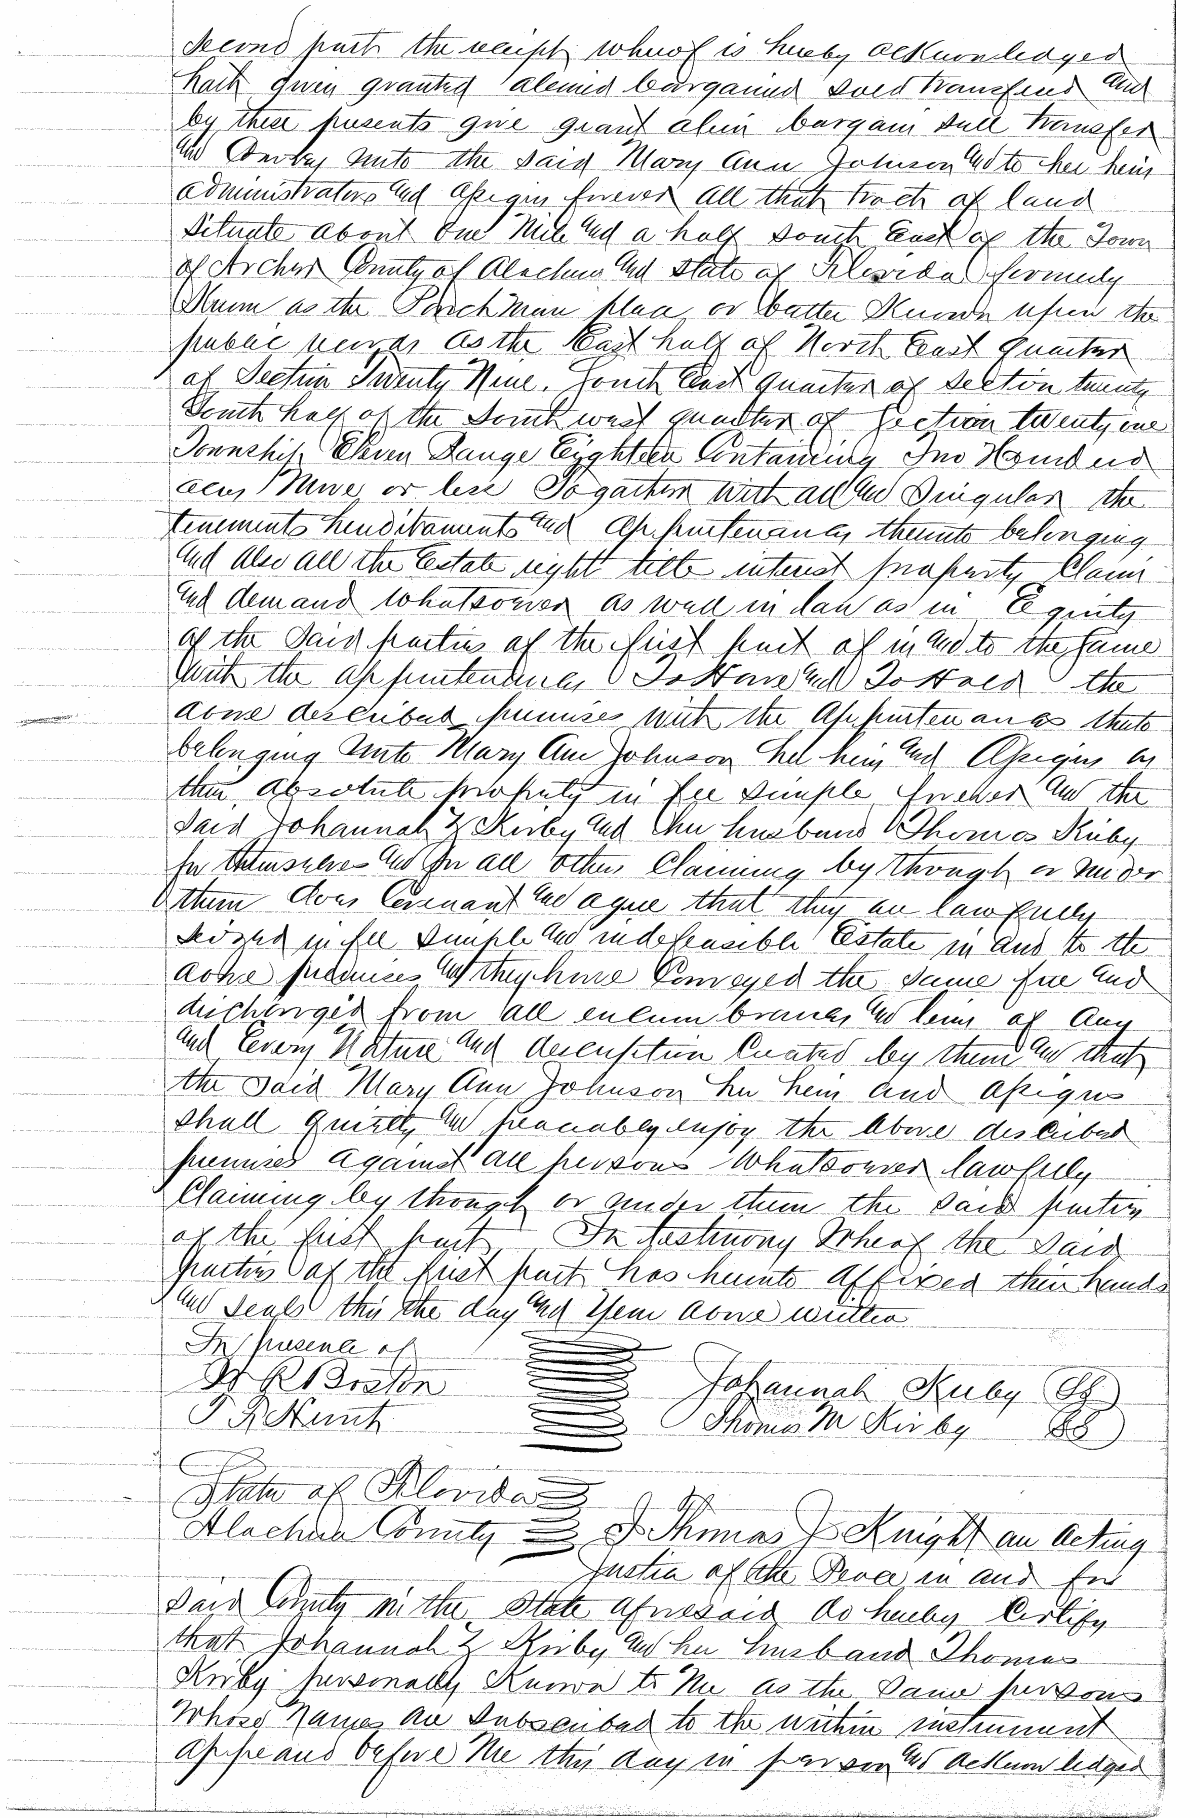 second part the receipt whereof is hereby acknowledged
hath given granted aliened bargained sold transferred and
by these presents give grant alien bargain sell transfer
and Convey unto the said Mary Ann Johnson and to her heirs
administrators and assigns forever all that tract of land
situate about One Mile and a half South East of the Town
of Archer County of Alachua and State of Florida formerly
Known as the Parchman place or better Known upon the
public records as the East half of North East quarter
of Section Twenty Nine. South East quarter of section twenty
South half of the South west quarter of Section twenty one
Township Eleven Range Eighteen Containing Two Hundred
acres More or less Together with all and Singular the
tenements hereditaments and appurtenances thereunto belonging
and also all the Estate right title interest property Claim
and demand whatsoever as well in law as in Equity
of the Said parties of the first part of in and to the same
with the appurtenances To Have and To Hold the
above described premises with the Appurtenances thereto
belonging unto Mary Ann Johnson her heirs and Assigns as
their absolute property in fee simple forever and the
Said Johannah Z Kirby and her husband Thomas Kirby
for themselves and for all others Claiming by through or under
them does Covenant and agree that they are lawfully
seized in fee simple and indefeasible Estate in and to the
above premises and they have Conveyed the same free and
discharged from all encumbrances and liens of Any
and Every Nature and description Created by them and that
the said Mary Ann Johnson her heirs and assigns
shall quietly and peaceably enjoy the above described
premises against all persons whatsoever lawfully
Claiming by through or under them the said parties
of the first part In testimony Whereof the Said
parties of the first part has hereunto affixed their hands
and seals this the day and Year above written
In presence of
W R Boston
T R Hunt
Johannah Kirby
Thomas M Kirby
State of Florida
Alachua County I Thomas J Knight an Acting
Justice of the Peace in and for
said County in the State aforesaid do hereby Certify
that Johannah Z Kirby and her husband Thomas
Kirby personally Known to Me as the Same persons
Whose Names are Subscribed to the within instrument
appeared before Me this day in person and acknowledged